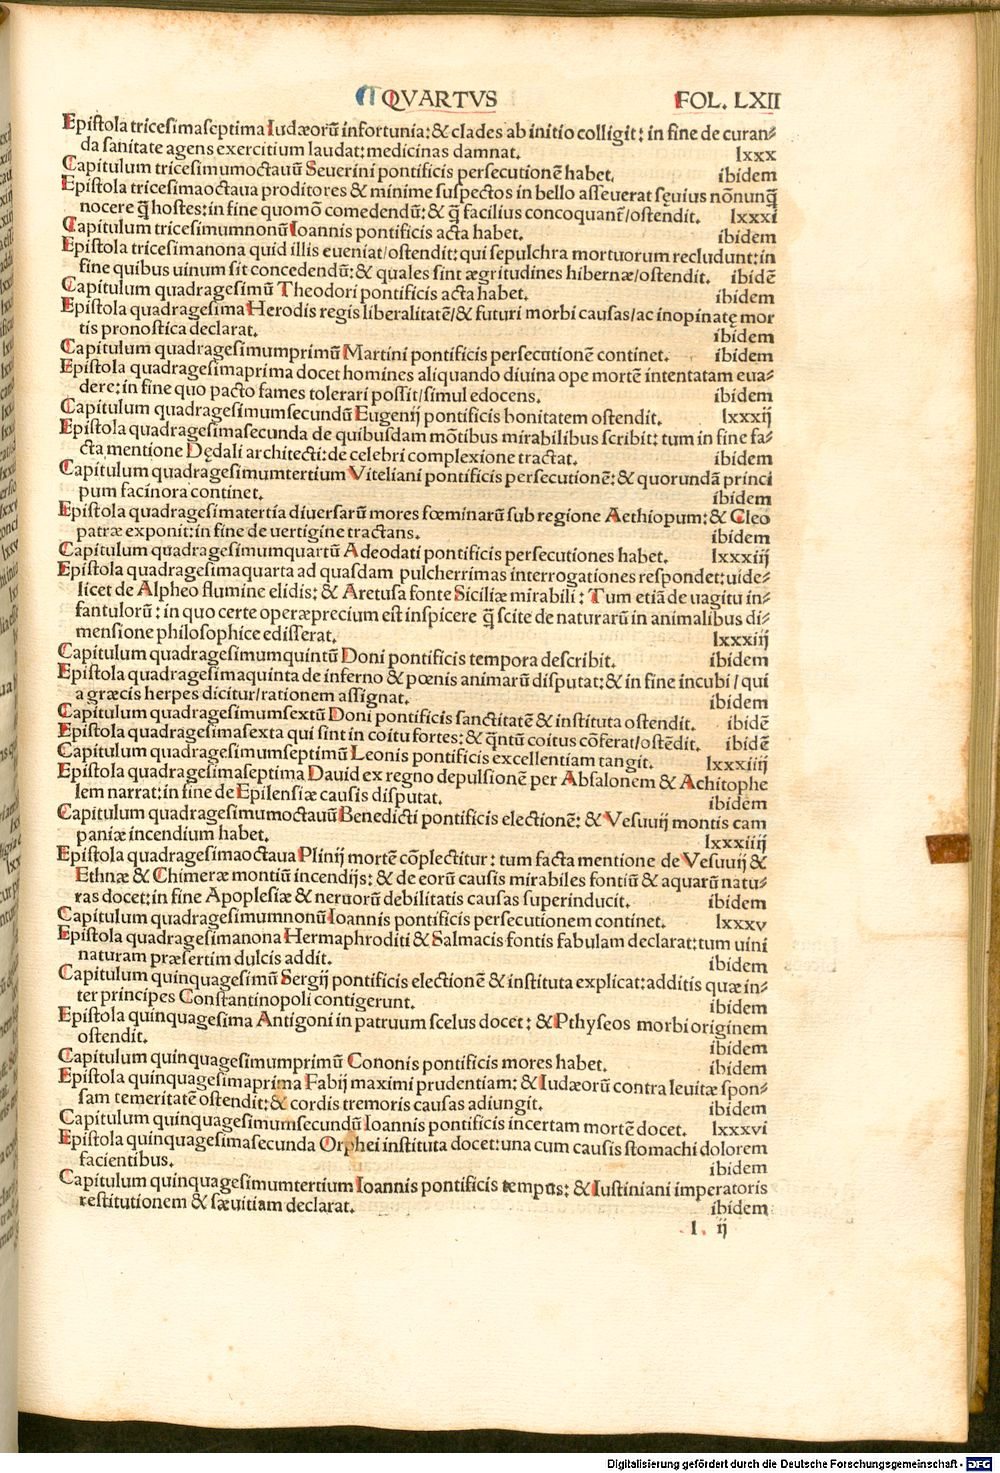 QVARTVS FOL. LXII
Epistola tricesimaseptima Iudæorū infortunia: & clades ab initio colligit: in fine de curan-
da sanitate agens exercitium laudat: medicinas damnat. lxxx
Capitulum tricesimumoctauū Seuerini pontificis persecutionē habet. ibidem
Epistola tricesimaoctaua proditores & minime suspectos in bello asseuerat sęuius nōnunq̄
nocere q̄ hostes: in fine quomō comedendū: & q̄ facilius concoquant̄/ostendit. lxxxi
Capitulum tricesimumnonū Ioannis pontificis acta habet. ibidem
Epistola tricesimanona quid illis eueniat/ostendit: qui sepulchra mortuorum recludunt: in
fine quibus uinum sit concedendū: & quales sint ægritudines hibernæ/ostendit. ibidē
Capitulum quadragesimū Theodori pontificis acta habet. ibidem
Epistola quadragesima Herodis regis liberalitatē/& futuri morbi causas/ac inopinatę mor
tis pronostica declarat. ibidem
Capitulum quadragesimumprimū Martini pontificis persecutionē continet. ibidem
Epistola quadragesimaprima docet homines aliquando diuina ope mortē intentatam eua-
dere: in fine quo pacto fames tolerari possit/simul edocens. ibidem
Capitulum quadragesimumsecundū Eugenij pontificis bonitatem ostendit. lxxxij
Epistola quadragesimasecunda de quibusdam mōtibus mirabilibus scribit: tum in fine fa-
cta mentione Dędali architecti: de celebri complexione tractat. ibidem
Capitulum quadragesimumtertium Viteliani pontificis persecutionē: & quorundā princi
pum facinora continet. ibidem
Epistola quadragesimatertia diuersarū mores fœminarū sub regione Aethiopum: & Cleo
patræ exponit: in fine de uertigine tractans. ibidem
Capitulum quadragesimumquartū Adeodati pontificis persecutiones habet. lxxxiij
Epistola quadragesimaquarta ad quasdam pulcherrimas interrogationes respondet: uide-
licet de Alpheo flumine elidis: & Aretusa fonte Siciliæ mirabili: Tum etiā de uagitu in-
fantulorū: in quo certe operæprecium est inspicere q̄ scite de naturarū in animalibus di-
mensione philosophice edisserat. lxxxiij
Capitulum quadragesimumquintū Doni pontificis tempora describit. ibidem
Epistola quadragesimaquinta de inferno & pœnis animarū disputat: & in fine incubi/qui
a græcis herpes dicitur/rationem assignat. ibidem
Capitulum quadragesimumsextū Doni pontificis sanctitatē & instituta ostendit. ibidē
Epistola quadragesimasexta qui sint in coitu fortes: & q̄ntū coitus cōferat/ostēdit. ibidē
Capitulum quadragesimumseptimū Leonis pontificis excellentiam tangit. lxxxiiij
Epistola quadragesimaseptima Dauid ex regno depulsionē per Absalonem & Achitophe
lem narrat: in fine de Epilensiæ causis disputat. ibidem
Capitulum quadragesimumoctauū Benedicti pontificis electionē: & Vesuuij montis cam
paniæ incendium habet. lxxxiiij
Epistola quadragesimaoctaua Plinij mortē cōplectitur: tum facta mentione de Vesuuij &
Ethnæ & Chimeræ montiū incendijs: & de eorū causis mirabiles fontiū & aquarū natu-
ras docet: in fine Apoplesiæ & neruorū debilitatis causas superinducit. ibidem
Capitulum quadragesimumnonū Ioannis pontificis persecutionem continet. lxxxv
Epistola quadragesimanona Hermaphroditi & Salmacis fontis fabulam declarat: tum uini
naturam præsertim dulcis addit. ibidem
Capitulum quinquagesimū Sergij pontificis electionē & instituta explicat: additis quæ in-
ter principes Constantinopoli contigerunt. ibidem
Epistola quinquagesima Antigoni in patruum scelus docet: & Pthyseos morbi originem
ostendit. ibidem
Capitulum quinquagesimumprimū Cononis pontificis mores habet. ibidem
Epistola quinquagesimaprima Fabij maximi prudentiam: & Iudæorū contra leuitæ spon-
sam temeritatē ostendit: & cordis tremoris causas adiungit. ibidem
Capitulum quinquagesimumsecundū Ioannis pontificis incertam mortē docet. lxxxvi
Epistola quinquagesimasecunda Orphei instituta docet: una cum causis stomachi dolorem
facientibus. ibidem
Capitulum quinquagesimumtertium Ioannis pontificis tempus: & Iustiniani imperatoris
restitutionem & sæuitiam declarat. ibidem
l. ij
Digitalisierung gefördert durch die Deutsche Forschungsgemeinschaft - DFG